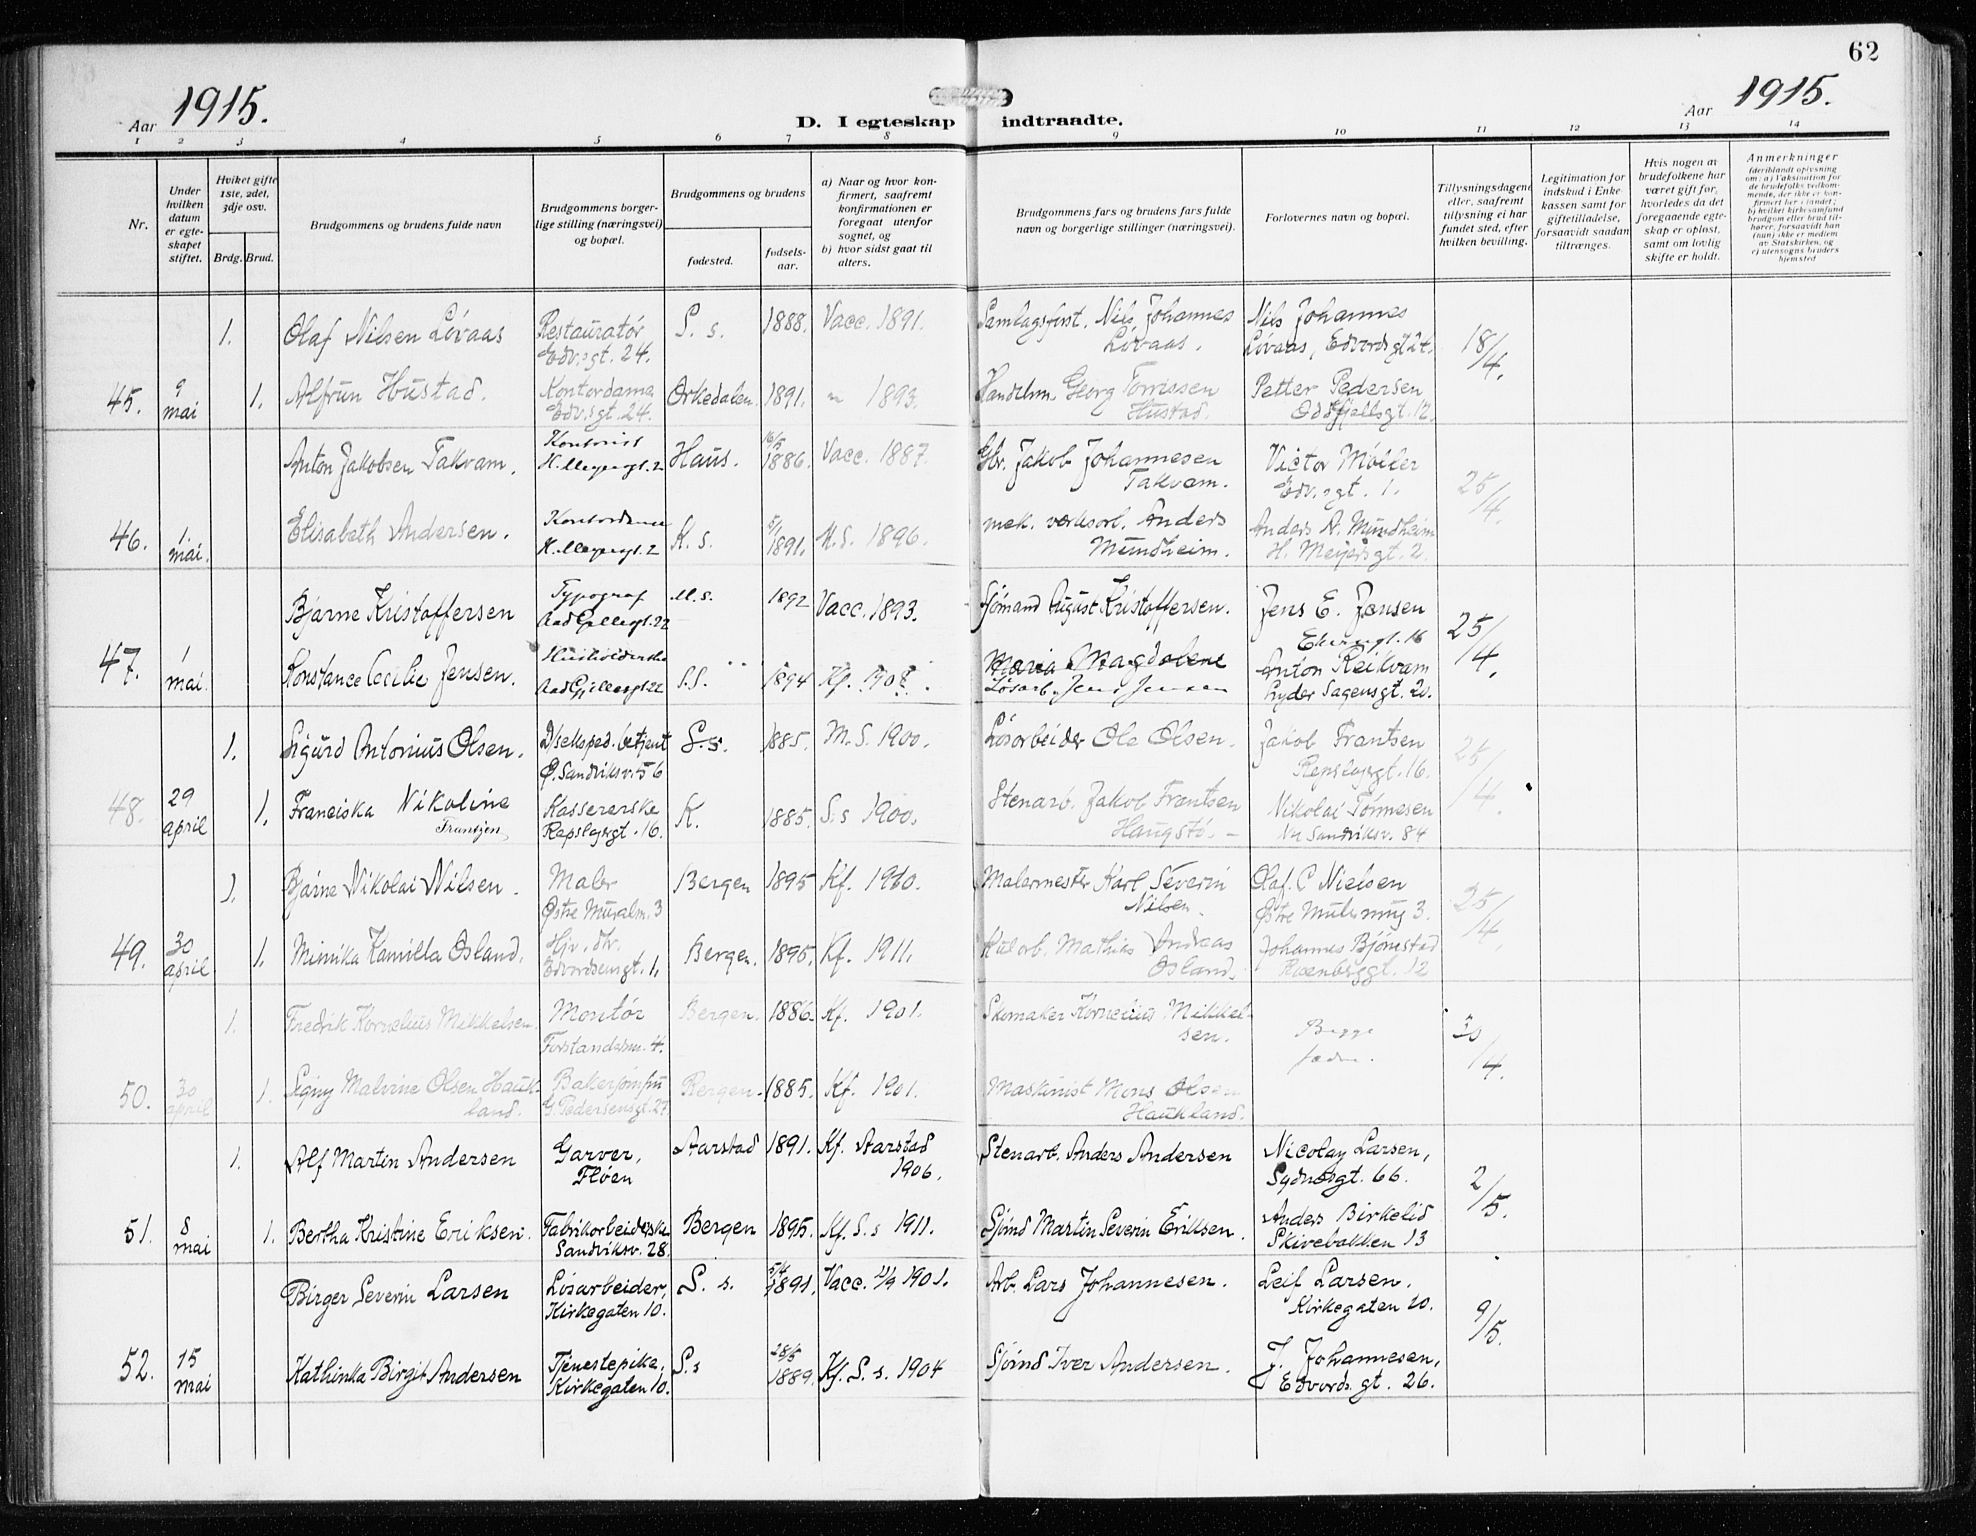 62
Aar 1915.
Aar 1915.
D. I egteskap indtraadte.
1 2 3 4 5 6 7 8 9 10 11 12 13 14
Nr.
Under hvilken datum er egteskapet stiftet.
Hvilket gifte 1ste, 2det, 3dje osv.
Brdg. Brud.
Brudgommens og brudens fulde navn
Brudgommens borgerlige stilling (næringsvei) og bopæl.
Brudgommens og brudens
fødested.
fødselsaar.
a) Naar og hvor konfirmert, saafremt konfirmationen er foregaat utenfor sognet, og
b) hvor sidst gaat til alters.
Brudgommens fars og brudens fars fulde navn og borgerlige stillinger (næringsvei).
Forlovernes navn og bopæl.
Tillysningsdagene eller, saafremt tillysning ei har fundet sted, efter hvilken bevilling.
Legitimation for indskud i Enkekassen samt for giftetilladelse, forsaavidt saadan tiltrænges.
Hvis nogen av brudefolkene har været gift før, hvorledes da det foregaaende egteskap er opløst, samt om lovlig skifte er holdt.
Anmerkninger
(deriblandt oplysning om: a) Vaksination for de brudefolks vedkommende, der ikke er konfirmert her i landet; b) hvilket kirkesamfund brudgom eller brud tilhører, forsaavidt han (hun) ikke er medlem av Statskirken, og c) utensogns bruders hjemsted
1. Olaf Nilsen Løvaas Restauratør Edv.sgt. 24. S. s. 1888. Vacc. 1891. Samlagsbest. Nils Johannes Løvaas. Nils Johannes Løvaas, Edvardsgt 24. 18/4.
45. 9 mai 1. Alfrun Hustad. Kontordame Edv.sgt. 24. Orkedalen. 1891. " 1893. Handelsm. Georg Torrissen Hustad. Petter Pedersen Oddfjellsgt. 12.
Anton Jakobsen Takvam. Kontorist H. Meyergt. 2 Haus. 16/5 1886. Vacc. 1887. Gbr. Jakob Johannesen Takvam. Victor Møller Edv.sgt. 1. 25/4.
46. 1 mai. Elisabeth Andersen. Kontordame H. Meyergt. 2 K. s. 5/1 1891. M. S. 1896. mek. verksarb. Anders Mundheim. Anders A. Mundheim H. Meyersgt. 2.
Bjarne Kristoffersen Typograf Aad Gjellesgt. 22 M. s. 1892 Vacc. 1893. Sjømand August Kristoffersen. Jens E. Jensen 16 25/4.
47. 1 mai. Konstance Cecilie Jensen. Aad Gjellesgt 22 S. S. 1894 Maria Magdalene Løsarb. Jens Jensen Anton Reikvam Lyder Sagensgt. 20.
1. Sigurd Antonius Olsen. D/seksped. betjent Ø. Sandviksv. 56 S. s. 1885. M. S. 1900. Løsarbeider Ole Olsen. Jakob Frantsen Repslagergt. 16. 25/4.
48. 29 april 1. Franciska Nikoline Frantzen. Kassererske Repslagergt. 16. K. 1885. S. s 1900. Stenarb. Jakob Frantsen Haugstø. Nikolai Tønnesen Ne Sandviksv. 84
1. Bjarne Nikolai Nilsen. Maler Østre Muralm. 3 Bergen 1895 Kf. 1910. Malermester Karl Severin Nilsen. Olaf. C Nielsen Østre 3. 25/4.
49. 30 april 1. Minnika Kamilla Osland. Hjv. dtr. Edvardsensgt. 1, Bergen. 1895. Kf. 1911. Kularb. Mathias Andreas Osland. Johannes Bjørnstad Rosenberggt. 12
1. Fredrik Kornelius Mikkelsen. Montør Forstandersm. 4. Bergen. 1886. Kf. 1901. Skomaker Kornelius Mikkelsen. Begge fædre. 30/4.
50. 30 april 1. Signy Malvine Olsen Haukland. Bakerjomfru G. Pedersensgt. 27. Bergen. 1885. Kf. 1901. Maskinist Mons Olsen Haukland.
1. Alf Martin Andersen Garver, Fløen Aarstad 1891. Kf. Aarstad 1906. Stenarb. Anders Andersen Nicolay Larsen, Sydnesgt. 66. 2/5.
51. 8 mai 1. Bertha Kristine Eriksen. Fabrikarbeiderske Sandviksv. 28. Bergen 1895. Kf. S. s 1911. Sjømd Martin Severin Eriksen. Anders Birkelid Skivebakken 13
Birger Severin Larsen Løsarbeider, Kirkegaten 10. S. s. 5/4 1891. Vacc. 21/9 1901. Arb. Lars Johannesen. Leif Larsen. Kirkegaten 10. 9/5.
52. 15 mai Kathinka Birgit Andersen Tjenestepike, Kirkegaten 10. S. s 28/5 1889. Kf. S. s. 1904 Sjømd Iver Andersen. J. Johannesen, Edvards gt. 26.